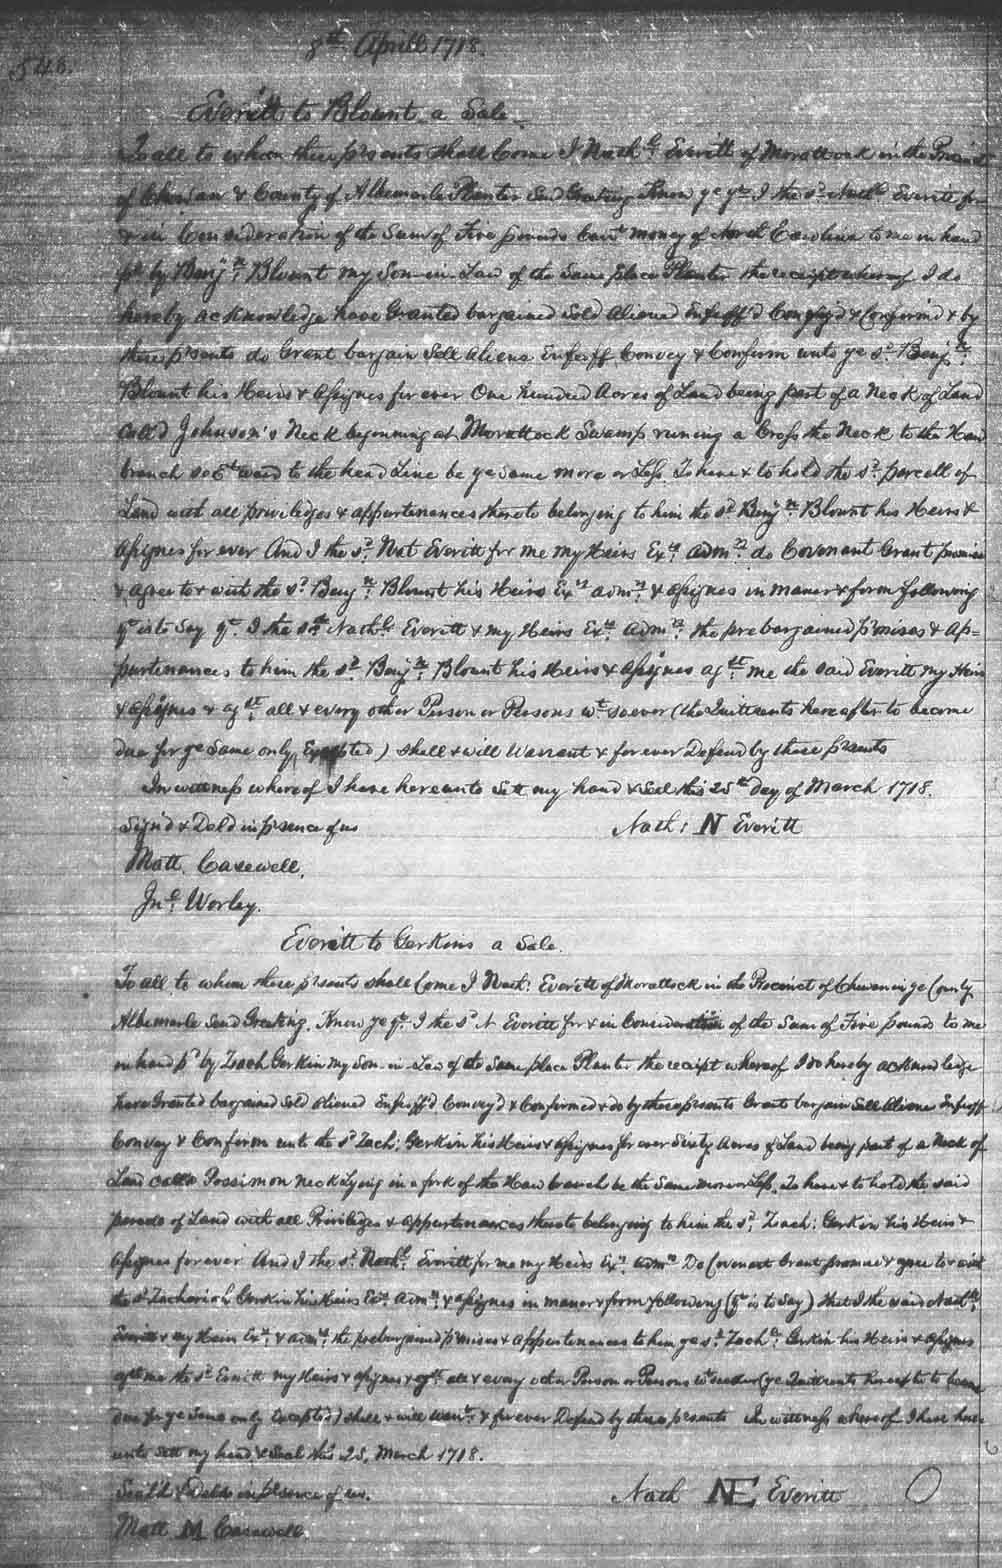 8th Aprill 1718.
546.
Everitt to Blount a Sale.
To all to whom these p'sents shall Come I Nathl. Everitt of Morattock in the Precinct
of Chowan & County of Albemarle Planter Send Greeting Know ye yt I the sd. Nathl. Everitt for
& in Consideration of the Sum of Five pounds Currt money of North Carolina to me in hand
pd. by Benjn. Blount my Son-in-Law of the Same place Planter the receipt whereof I do
hereby acknowledge have Granted bargained Sold Aliened Infeoff'd Convey'd & Confirm'd & by
these p'sents do Grant bargain Sell Aliene Enfeoff Convey & Confirm unto ye sd. Benjn.
Blount his Heirs & Assignes for ever One hundred Acres of Land being part of a Neck of Land
call'd Johnson's Neck begonning at Morattock Swamp runing a Cross the Neck to the Haw
branch so Et ward to the head Line be ye same more or Less To have & to hold the sd. parcell of
Land with all priviledges & appurtenances thereto belonging to him the sd Benjn. Blount his Heirs &
Assignes for ever And I the sd. Nat Everitt for me my Heirs Exrs. Admrs. do Covenant Grant promise
& agree to & with the sd. Benjn. Blount his Heirs Exrs Admrs. & Assignes in maner & form following
yt is to Say yt. I the sd. Nathl. Everitt & my Heirs Exrs. Admrs. the prebargained p'mises & Ap=
purtenances to him the sd. Benjn. Blount his Heirs & Assignes agst. me the said Everitt my Heirs
& Assignes & agst. all & every other Person or Persons wt. soever (the Quittrents hereafter to become
due for ye Same only Excepted) shall & will Warrant & for ever Defend by these p'sents
In wittness whereof I have hereunto Sett my hand & Seal this 25th day of March 1718.
Sign'd & Deld in p'sence of us Nath: N Everitt
Matt. Casewell.
Jno. Worley.
Everitt to Gerkins a Sale.
To all to whom these p'sents shall Come I Nath: Everitt of Morattock in the Precinct of Chowan in ye County
Albemarle Send Greeting. Know ye yt. I the sd N Everitt for & in Consideration of the Sum of Five pound to me
in hand pd by Zach Gerkin my Son-in-Law of the Same place Planter the receipt whereof I do hereby acknowledge
have Granted bargained Sold aliened Enfeoff'd Convey'd & Confirmed & do by these p'sents Grant bargain Sell Aliene Infeoff
Convey & Confirm unto the sd Zach: Gerkin his Heirs & Assignes for ever Sixty Acres of Land being part of a Neck of
Land call'd Possimon Neck Lying in a fork of the Haw branch be the Same more or Less. To have & to hold the said
of Land with all Priviledges & appurtenances thereto belonging to him the sd. Zach: Gerkin his Heirs &
Assignes for ever And I the sd. Nathl. Everitt for me my Heirs Exrs. Admrs Do Covenant Grant promise & agree to & with
the sd Zachariah Gerkin his Heirs Exrs. Admrs. & Assignes in maner & from following (yt is to Say) that I the said Nathl.
Everitt & my Heirs Exrs. & Admrs. the prebargained p'mises & Appurtenances to him ye sd. Zachh. Gerkin his Heirs & Assignes
agst me the sd Everitt my Heirs & Assignes & agst. all & every other Person or Persons wtsoever (ye Quittrents hereafter to become
due for ye Same only Excepted) shall & will Warrt. & for ever Defend by these p'sents In wittness whereof I have here
unto Sett my hand & Seal this 25. March 1718.
Seal'd & Deld in p'sence of us. Nath NE Everitt
Matt M Casewell.